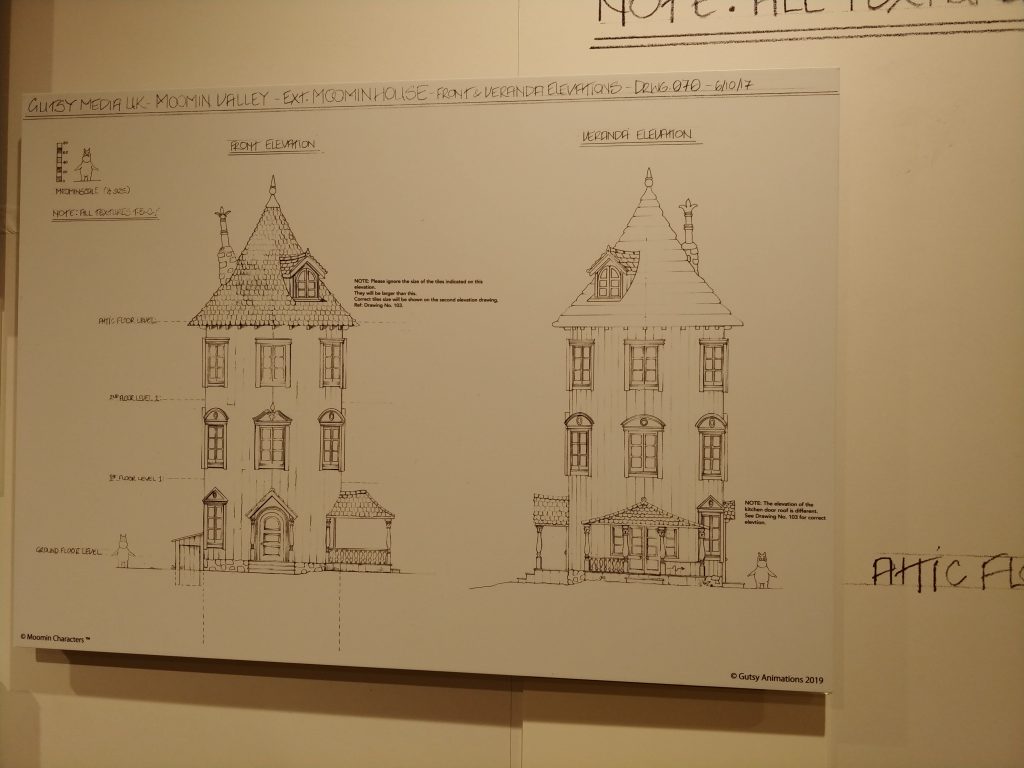 NOTE: ALL
GUTSY MEDIA UK - MOOMIN VALLEY - EXT. MOOMINHOUSE - FRONT & VERANDA ELEVATIONS - DRWG. 070 - 6/10/17
FRONT ELEVATION
VERANDA ELEVATION
NOTE: ALL TEXTURES
NOTE: Please ignore the size of the tiles indicated on this
elevation.
They will be larger than this.
Correct tiles size will be shown on the second elevation drawing.
Ref: Drawing No. 103.
ATTIC FLOOR LEVEL
2ND FLOOR LEVEL
1ST FLOOR LEVEL
NOTE: The elevation of the
kitchen door roof is different.
See Drawing No. 103 for correct
elevtion.
GROUND FLOOR LEVEL
ATTIC FLO
© Moomin Characters ™
© Gutsy Animations 2019